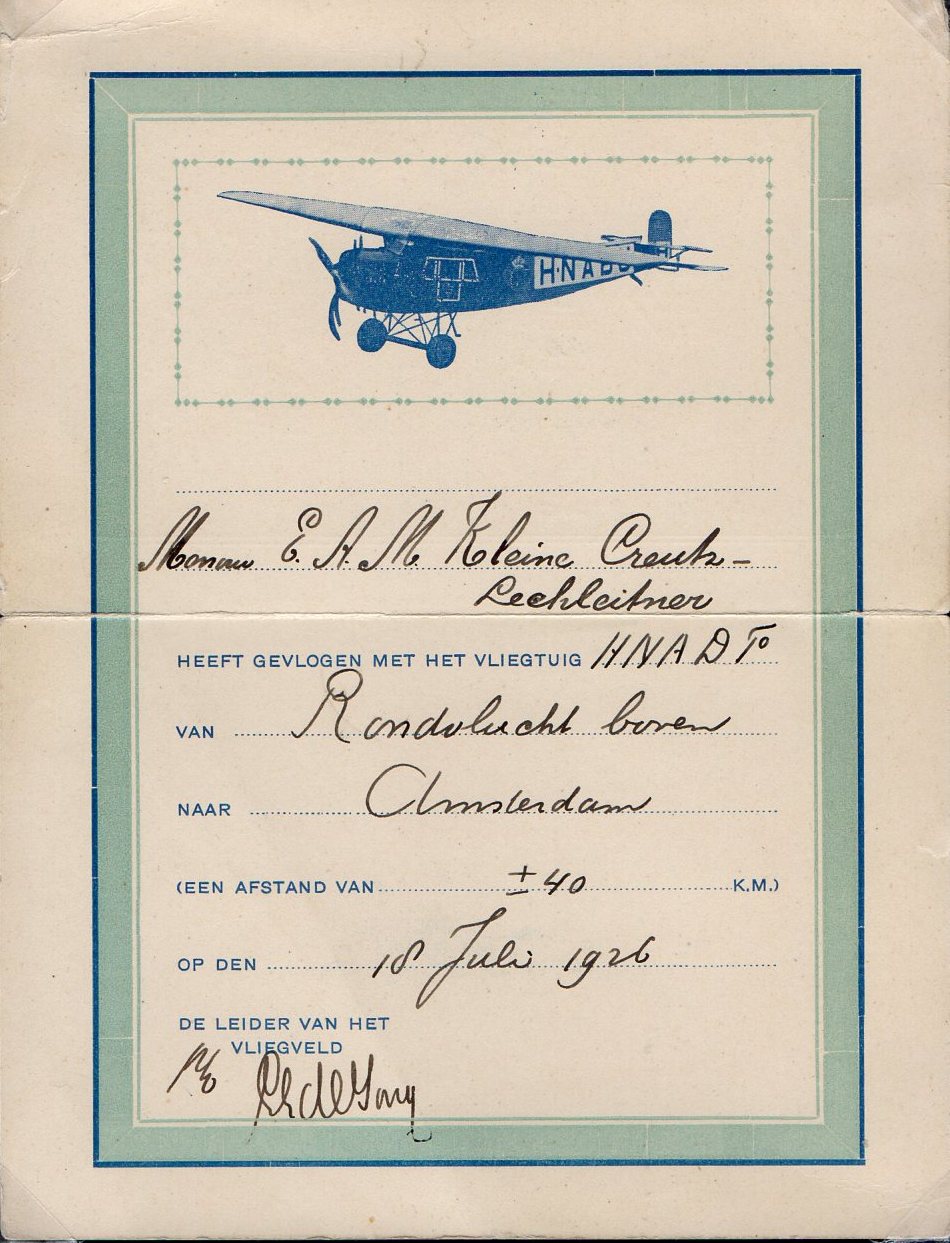 H·NABU
Mevrouw E. A. M. Kleine Creutz-
Lechleitner
HEEFT GEVLOGEN MET HET VLIEGTUIG HNADT
VAN Rondvlucht boven
NAAR Amsterdam
(EEN AFSTAND VAN ± 40 K.M.)
OP DEN 18 Juli 1926
DE LEIDER VAN HET
VLIEGVELD